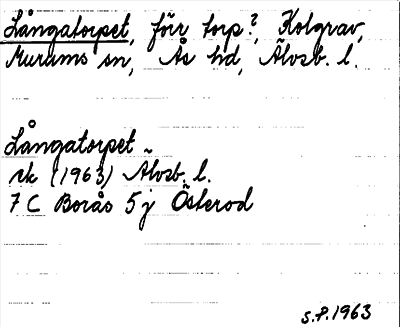 Långatorpet, förr torp?, Kolgrav,
Murums sn, Ås hd, Älvsb. l.
Långatorpet ~
rk (1963) Älvsb. l.
7 C Borås 5 j Österod
S.P. 1963